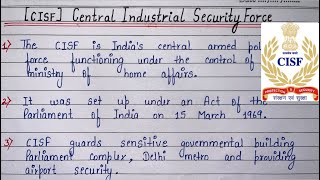 [CISF] Central Industrial Security Force
1) The CISF is India's central armed pol
force functioning under the control of
ministry of home affairs.
2) It was set up under an Act of the
Parliament of India on 15 March 1969.
3) CISF guards sensitive governmental building
Parliament complex, Delhi metro and providing
airport security.
CISF
PROTECTION & SECURITY
संरक्षण एवं सुरक्षा